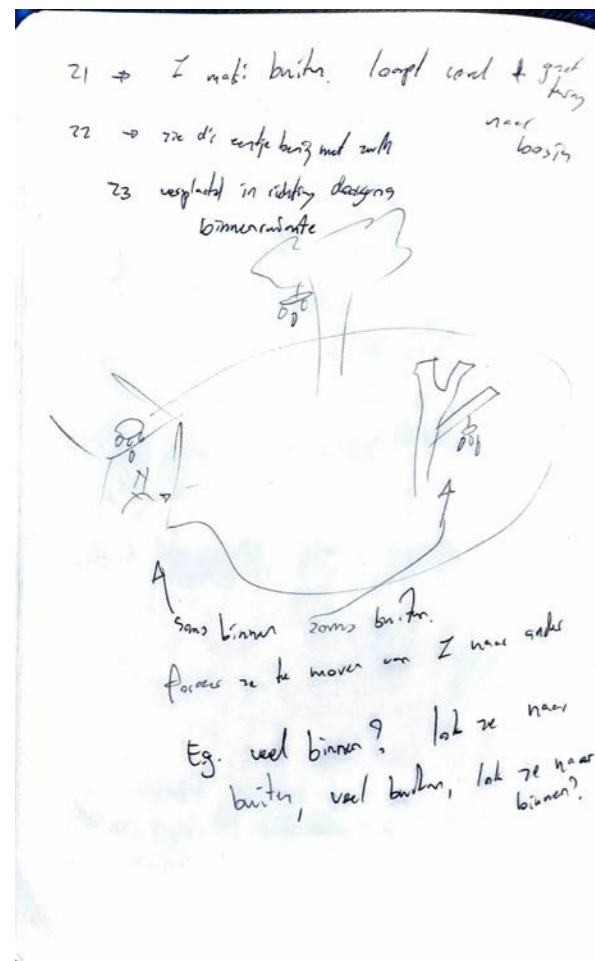 Z1 → I maki buiten. loopt rond + gaat
terug
naar
basis
Z2 → zie d'r eentje bezig met
Z3 verplaatst in richting
binnenruimte
Soms binnen soms buiten.
Forceer ze te moven van I naar ander
Eg. veel binnen? lok ze naar
buiten, veel buiten, lok ze naar
binnen?